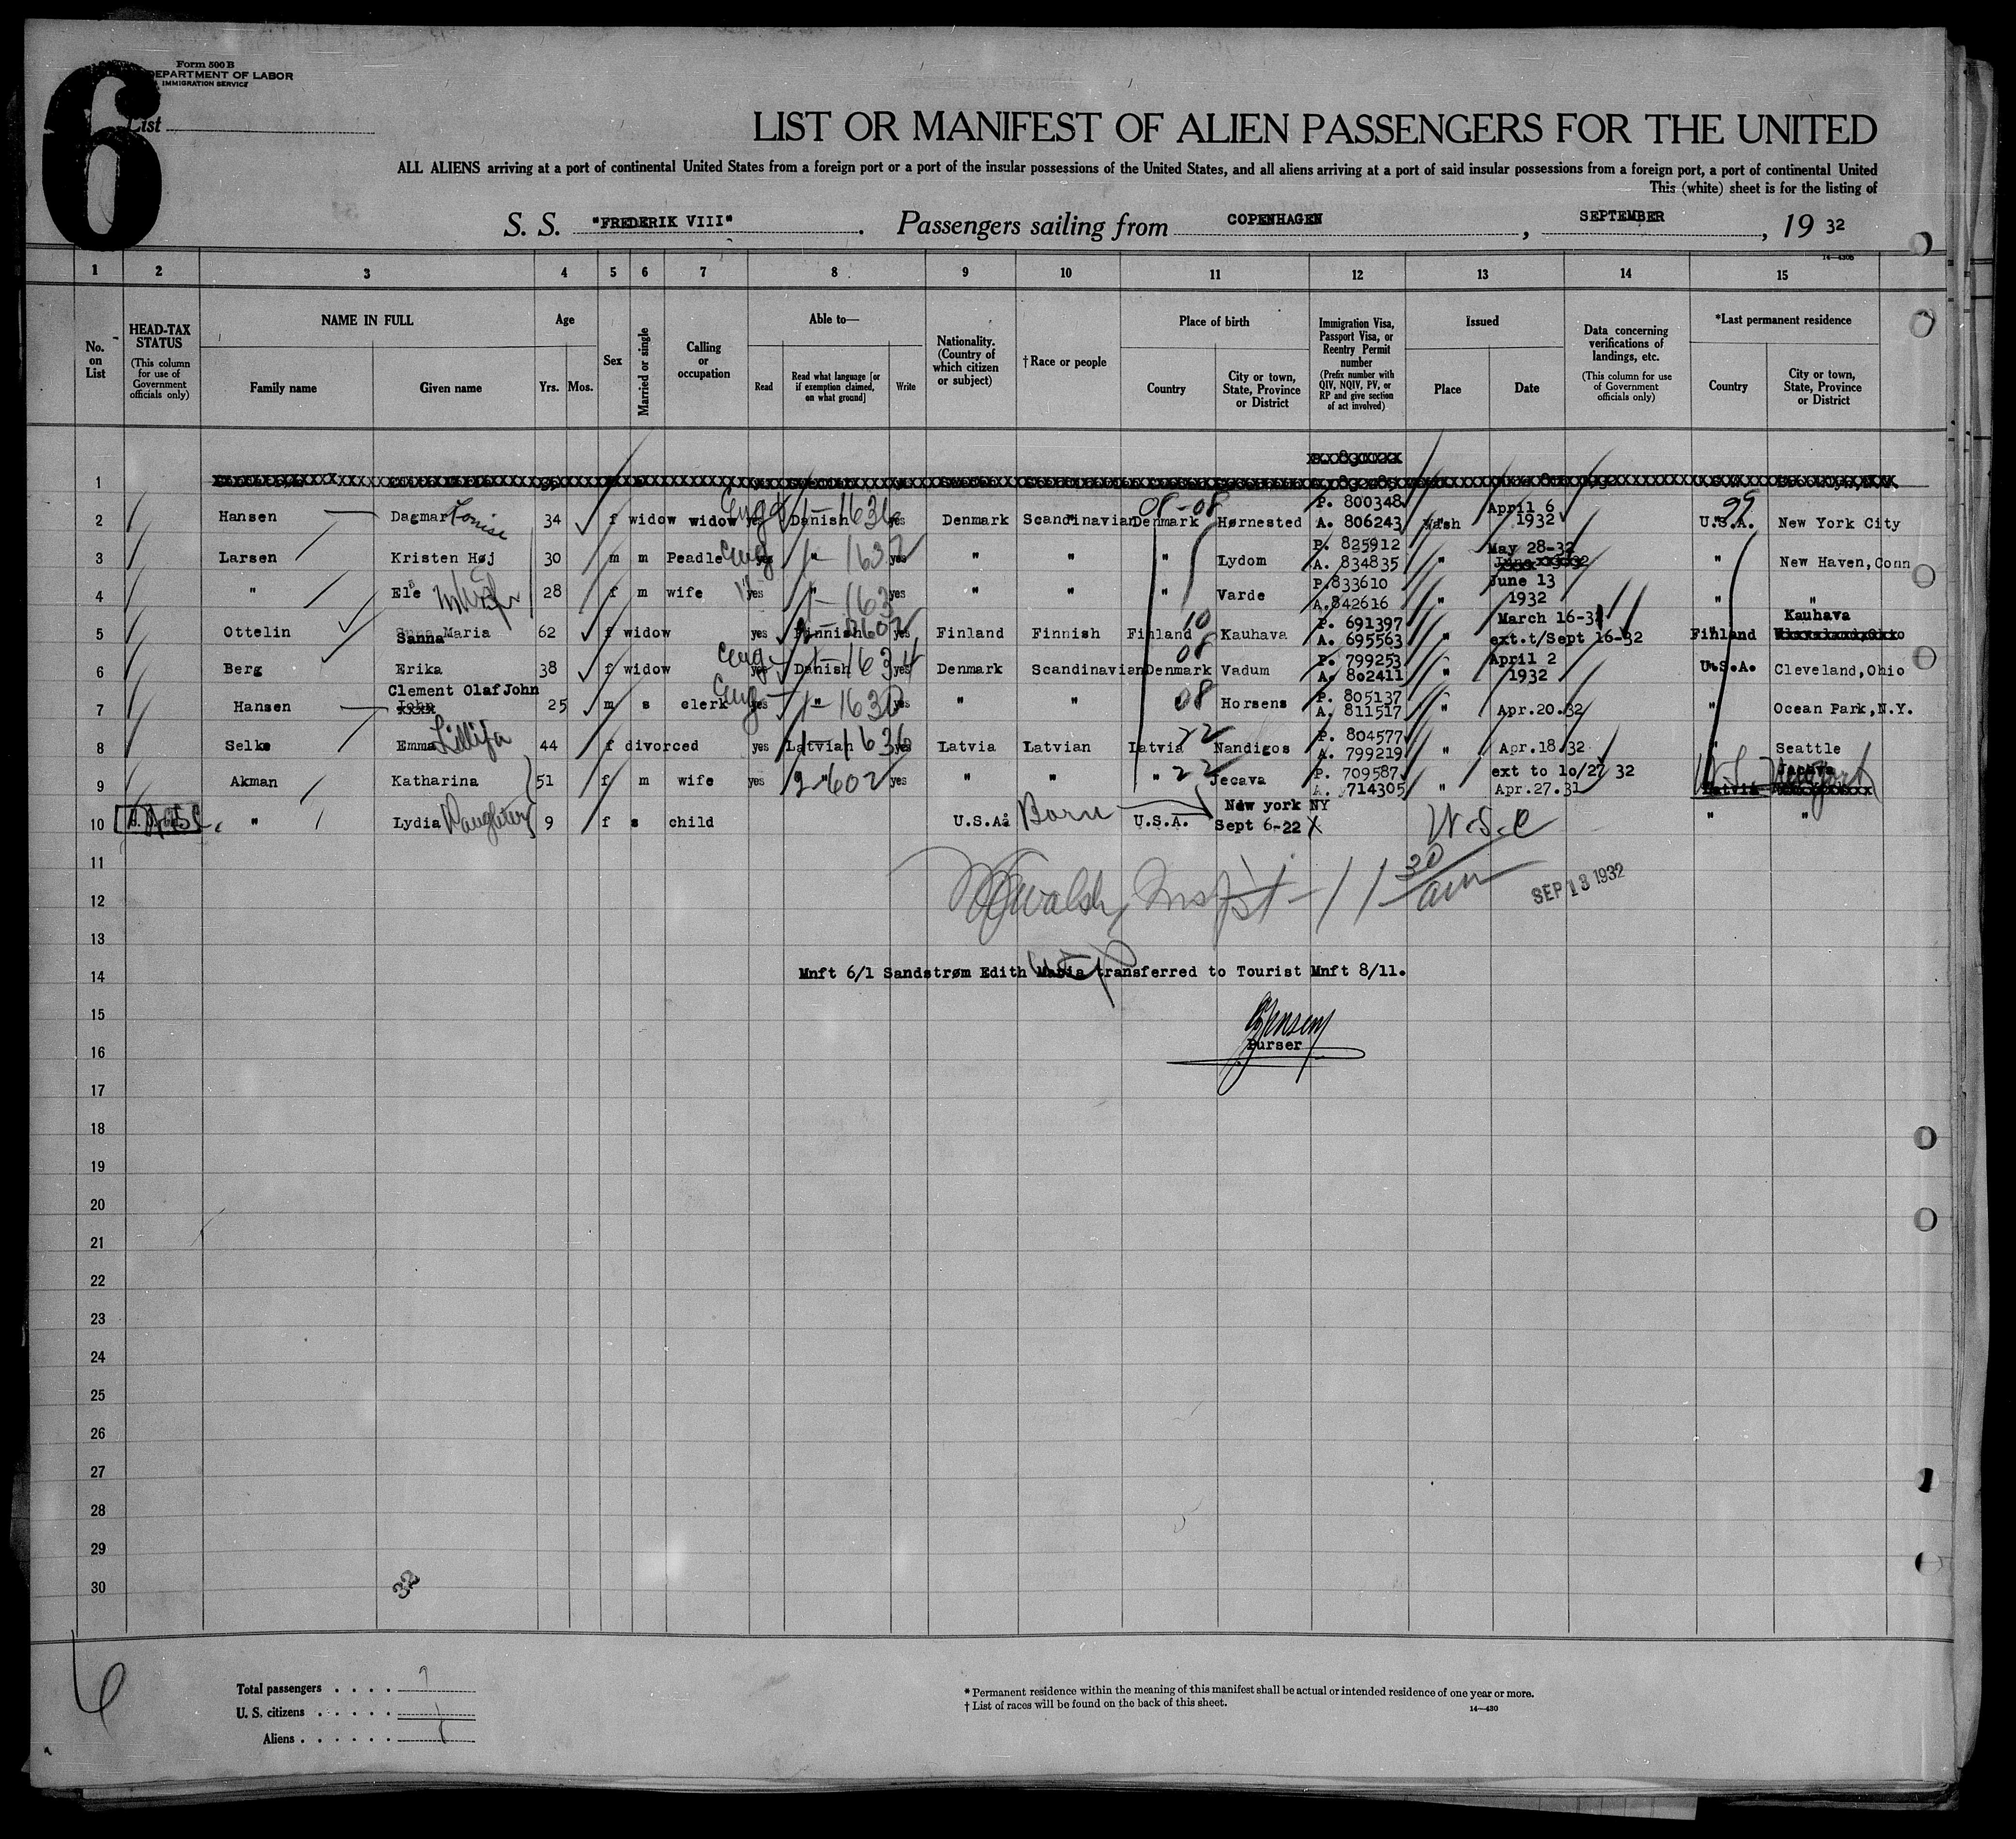 6
Form 500 B
DEPARTMENT OF LABOR
IMMIGRATION SERVICE
List
LIST OR MANIFEST OF ALIEN PASSENGERS FOR THE UNITED
ALL ALIENS arriving at a port of continental United States from a foreign port or a port of the insular possessions of the United States, and all aliens arriving at a port of said insular possessions from a foreign port, a port of continental United
This (white) sheet is for the listing of
S. S. "FREDERIK VIII". Passengers sailing from COPENHAGEN, SEPTEMBER, 19 32
1 2 3 4 5 6 7 8 9 10 11 12 13 14 15
No. on List
HEAD-TAX STATUS (This column for use of Government officials only)
NAME IN FULL Family name Given name
Age Yrs. Mos.
Sex
Married or single
Calling or occupation
Able to— Read Read what language [or if exemption claimed, on what ground] Write
Nationality. (Country of which citizen or subject)
†Race or people
Place of birth Country City or town, State, Province or District
Immigration Visa, Passport Visa, or Reentry Permit number (Prefix number with QIV, NQIV, PV, or RP and give section of act involved)
Issued Place Date
Data concerning verifications of landings, etc. (This column for use of Government officials only)
*Last permanent residence Country City or town, State, Province or District
1
2 Hansen Dagmar Louise 34 f widow widow yes Eng Danish yes Denmark Scandinavian Denmark Hørnested P. 800348 A. 806243 Wash April 6 1932 U.S.A. New York City
3 Larsen Kristen Høj 30 m m Peadle Eng " yes " " " Lydom P. 825912 A. 834835 " May 28-32 " New Haven, Conn
4 " Ele wife 28 f m wife yes " yes " " " Varde P.833610 A.842616 " June 13 1932 " "
5 Ottelin Sanna Maria 62 f widow yes Finnish yes Finland Finnish Finland Kauhava P. 691397 A. 695563 " March 16-31 ext.t/Sept 16-32 Finland Kauhava
6 Berg Erika 38 f widow yes Eng Danish yes Denmark Scandinavian Denmark Vadum P. 799253 A. 802411 " April 2 1932 U.S.A. Cleveland, Ohio
7 Hansen Clement Olaf John 25 m s clerk yes Eng " yes " " Horsens P. 805137 A. 811517 " Apr.20.32 " Ocean Park, N.Y.
8 Selke Emma 44 f divorced yes Latvian yes Latvia Latvian Latvia Nandigos P. 804577 A. 799219 " Apr.18.32 " Seattle
9 Akman Katharina 51 f m wife yes " yes " " " Jecava P. 709587 A. 714305 " ext to 10/27 32 Apr.27.31
10 " Lydia Daughter 9 f s child U.S.A. Born U.S.A. New york NY Sept 6-22 U.S.C " "
11
12 Walsh, Inspt - 11 30 am SEP 13 1932
13
14 Mnft 6/1 Sandstrøm Edith Maria transferred to Tourist Mnft 8/11.
15
16 Purser
17
18
19
20
21
22
23
24
25
26
27
28
29
30
32
6
Total passengers
U. S. citizens
Aliens
* Permanent residence within the meaning of this manifest shall be actual or intended residence of one year or more.
† List of races will be found on the back of this sheet.
14—430